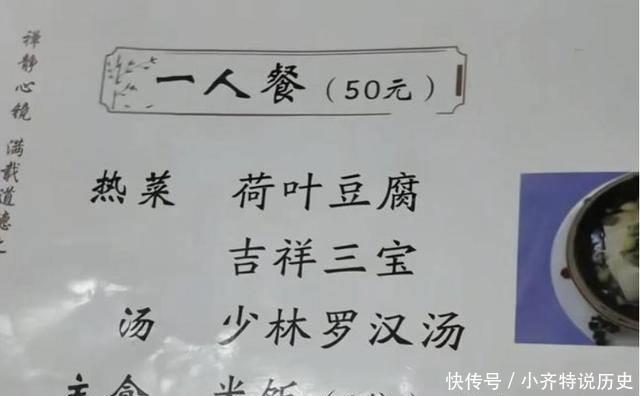 禅静心镜 满载道德之
一人餐（50元）
热菜 荷叶豆腐
吉祥三宝
汤 少林罗汉汤
主食 米饭
快传号／小齐特说历史